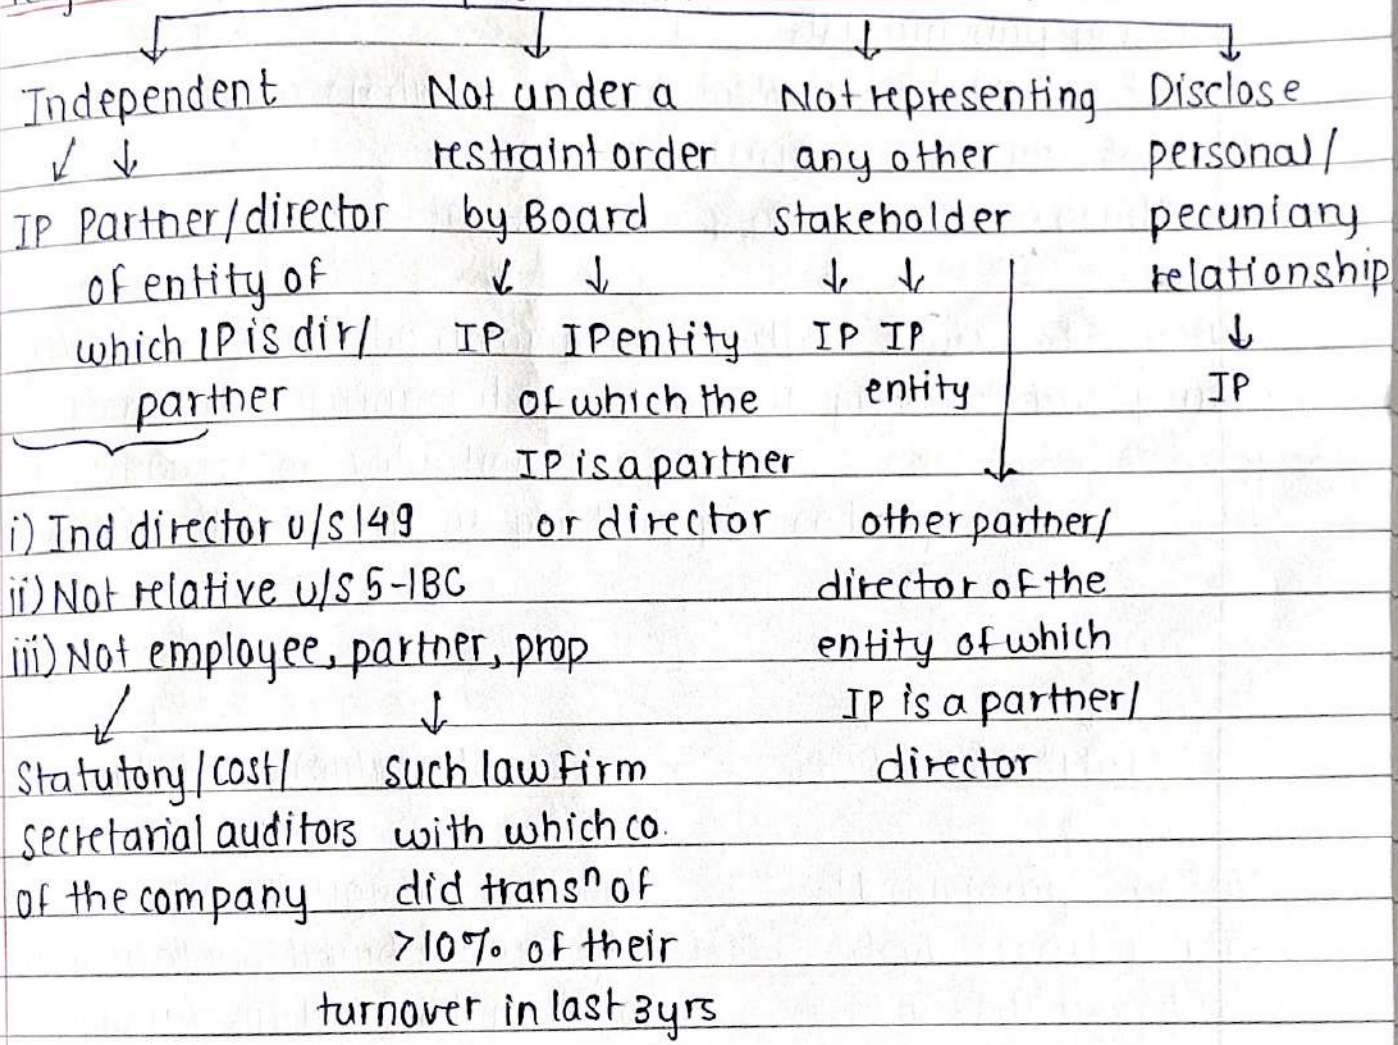 Independent
IP Partner/director
of entity of
which IP is dir/
partner
i) Ind director u/s 149
ii) Not relative u/s 5-IBC
iii) Not employee, partner, prop
Statutory/cost/
secretarial auditors
of the company
such law firm
with which co.
did transⁿ of
>10% of their
turnover in last 3 yrs
Not under a
restraint order
by Board
IP IP entity
of which the
IP is a partner
or director
Not representing
any other
stakeholder
IP IP
entity
other partner/
director of the
entity of which
IP is a partner/
director
Disclose
personal/
pecuniary
relationship
IP